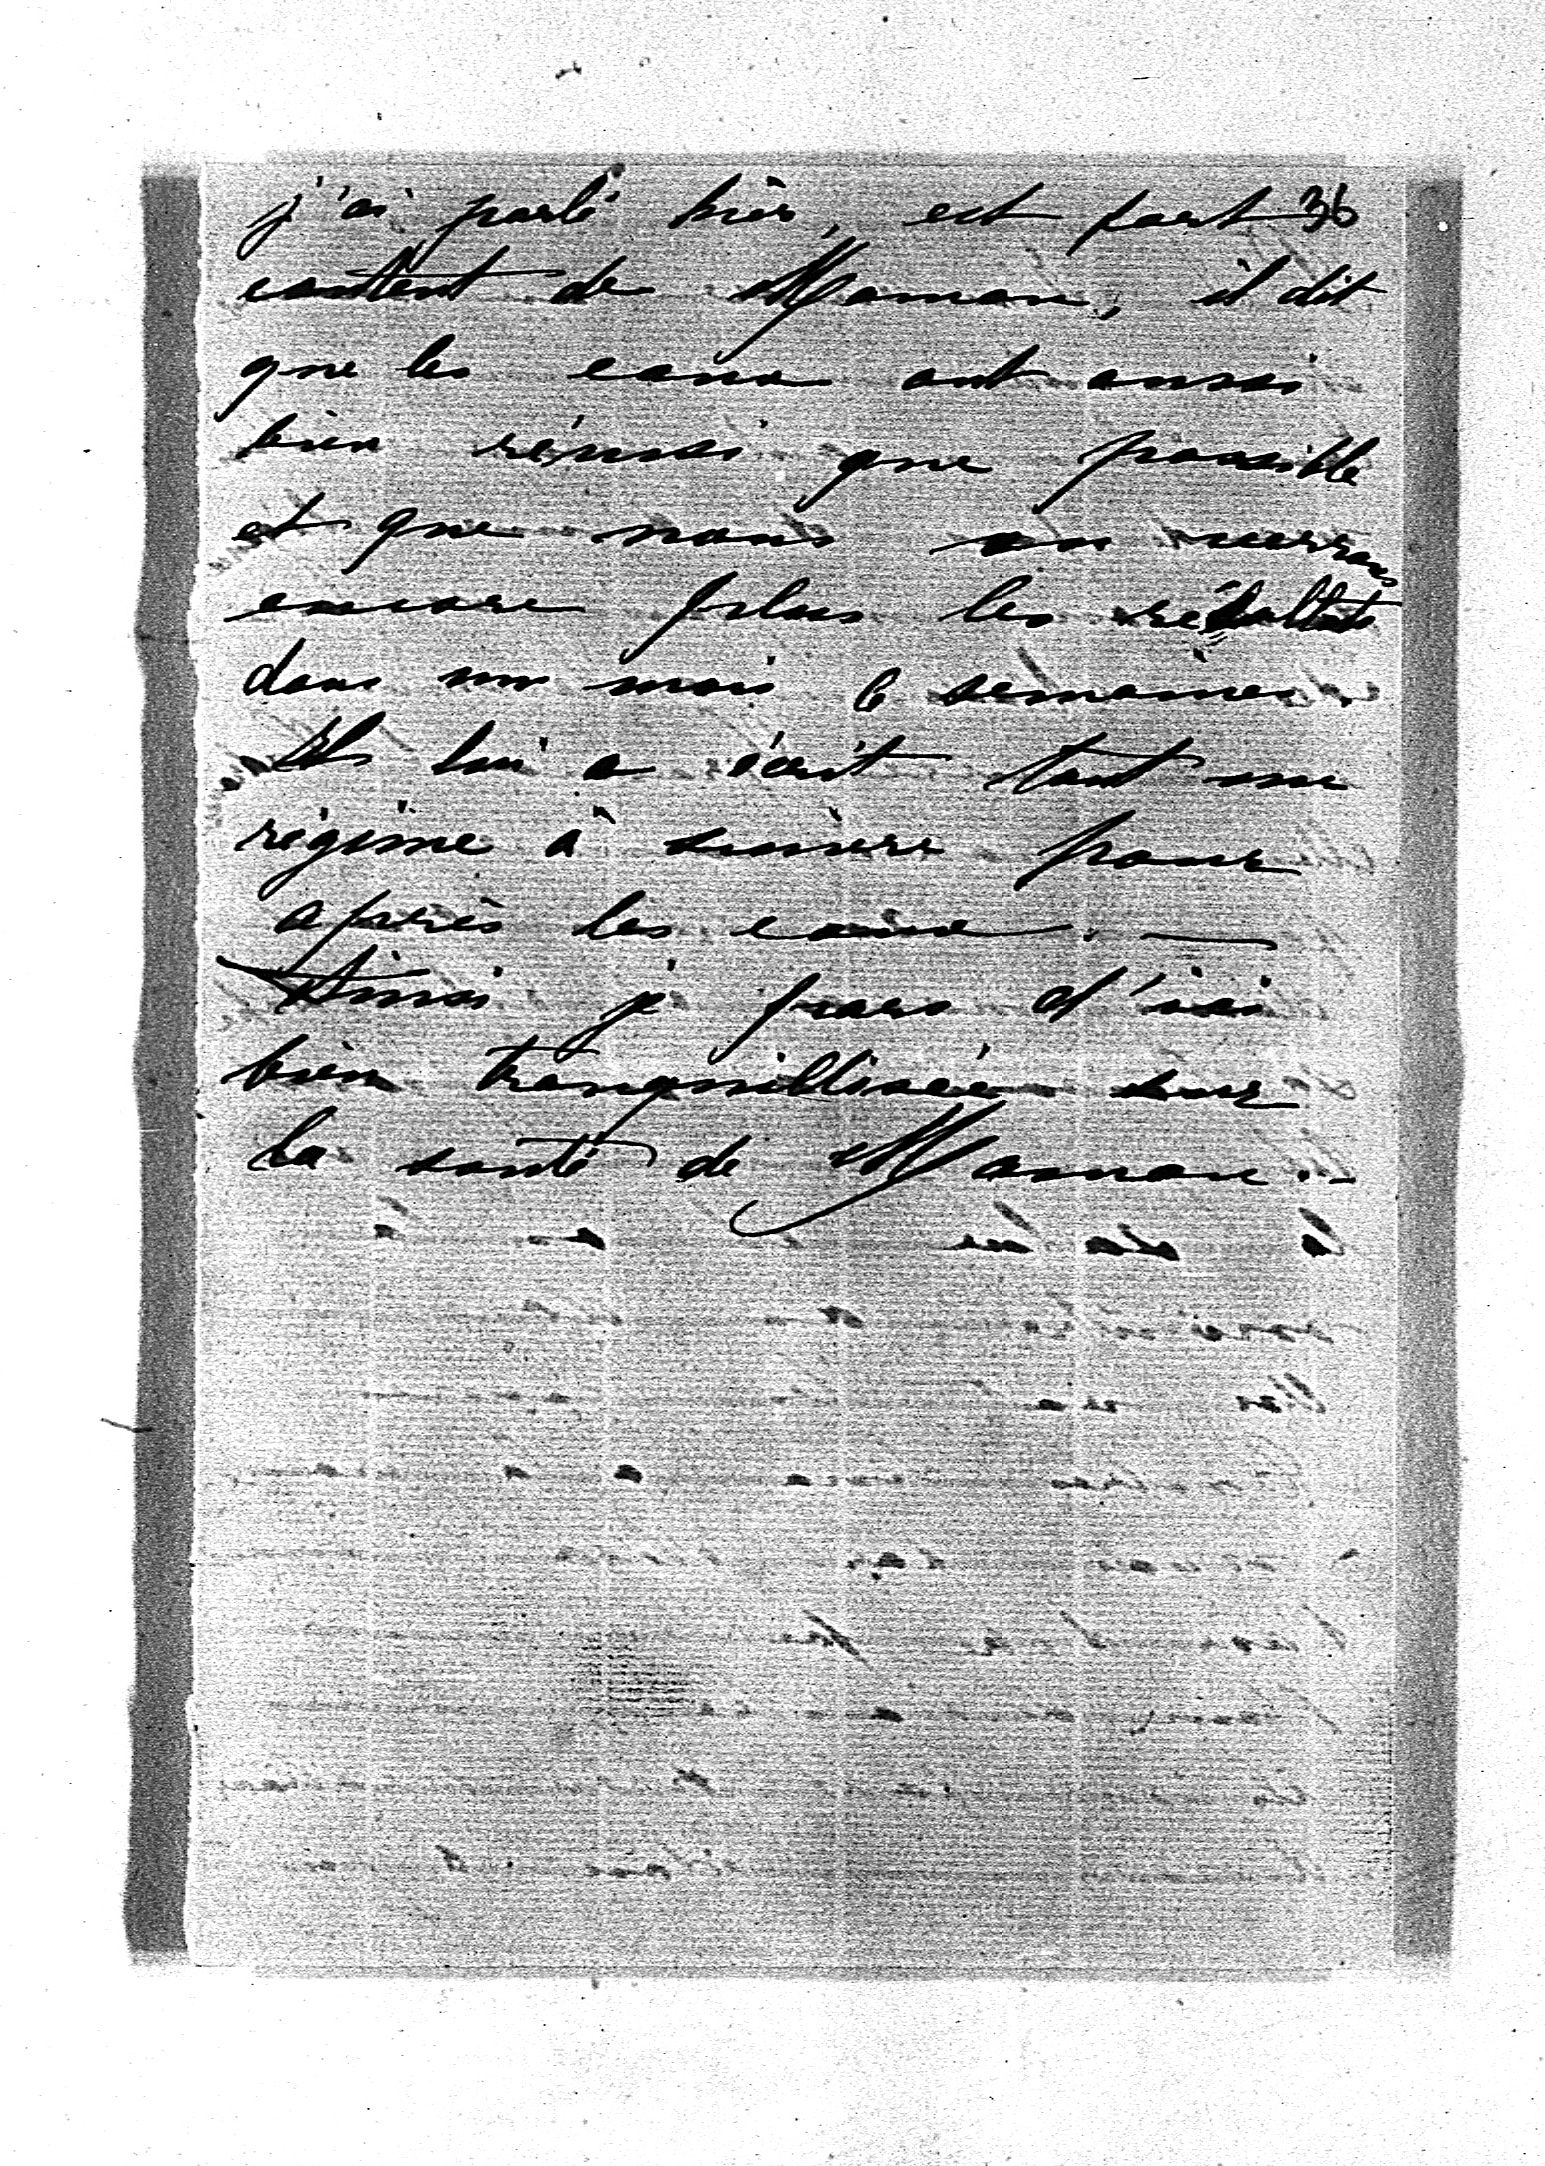 j'ai parlé hier, est fort 36
content de Maman, il dit
que les eaux ont aussi
bien réussi que possible
et que nous en verrons
encore plus les résultats
dans un mois 6 semaines.
Il lui a écrit tout un
régime à suivre pour
après les eaux. —
Ainsi je pars d'ici
bien tranquillisée sur
la santé de Maman. —